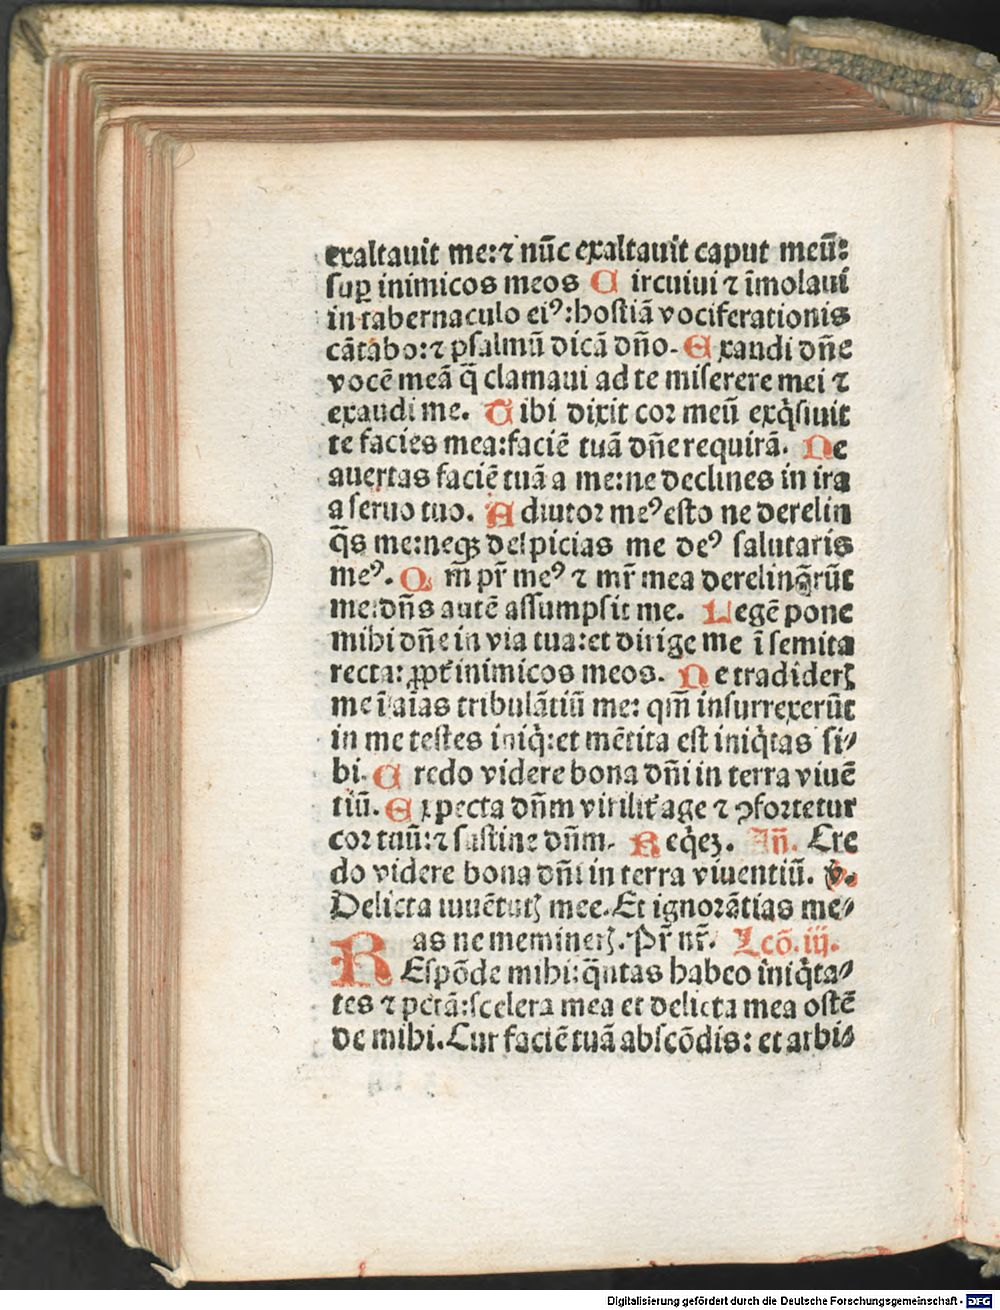 exaltauit me:⁊ nūc exaltauit caput meū:
sup̱ inimicos meos Circuiui ⁊ īmolaui
in tabernaculo eiꝰ:hostiā vociferationis
cātabo:⁊ psalmū dicā dn̄o. Exandi dn̄e
vocē meā q̄ clamaui ad te miserere mei ⁊
exaudi me. Tibi dixit cor meū exq̇siuit
te facies mea:faciē tuā dn̄e requirā. Ne
auertas faciē tuā a me:ne declines in ira
a seruo tuo. Adiutor meꝰ esto ne derelin
q̄s me:neqꝫ despicias me deꝰ salutaris
meꝰ. Qm̄ pr̄ meꝰ ⁊ mr̄ mea derelinq̄rūt
me:dn̄s autē assumpsit me. Legē pone
mihi dn̄e in via tua:et dirige me ī semita
recta: ꝓpt̄ inimicos meos. Ne tradiderꝭ
me ī aīas tribulātiū me: qm̄ insurrexerūt
in me testes iniq̇:et mētita est iniq̇tas si⸗
bi. Credo videre bona dn̄i in terra viuē
tiū. Expecta dn̄m virilit̄ age ⁊ ꝯfortetur
cor tuū:⁊ sustine dn̄m. Req̇eꝫ. An̄. Cre
do videre bona dn̄i in terra viuentiū. ℣.
Delicta iuuētutꝭ mee. Et ignorātias me⸗
as ne meminerꝭ. Pr̄ nr̄. Lcō. iij.
REspōde mihi:q̄ntas habeo iniq̇ta⸗
tes ⁊ pctā:scelera mea et delicta mea ostē
de mihi. Cur faciē tuā abscōdis: et arbi⸗
Digitalisierung gefördert durch die Deutsche Forschungsgemeinschaft - DFG